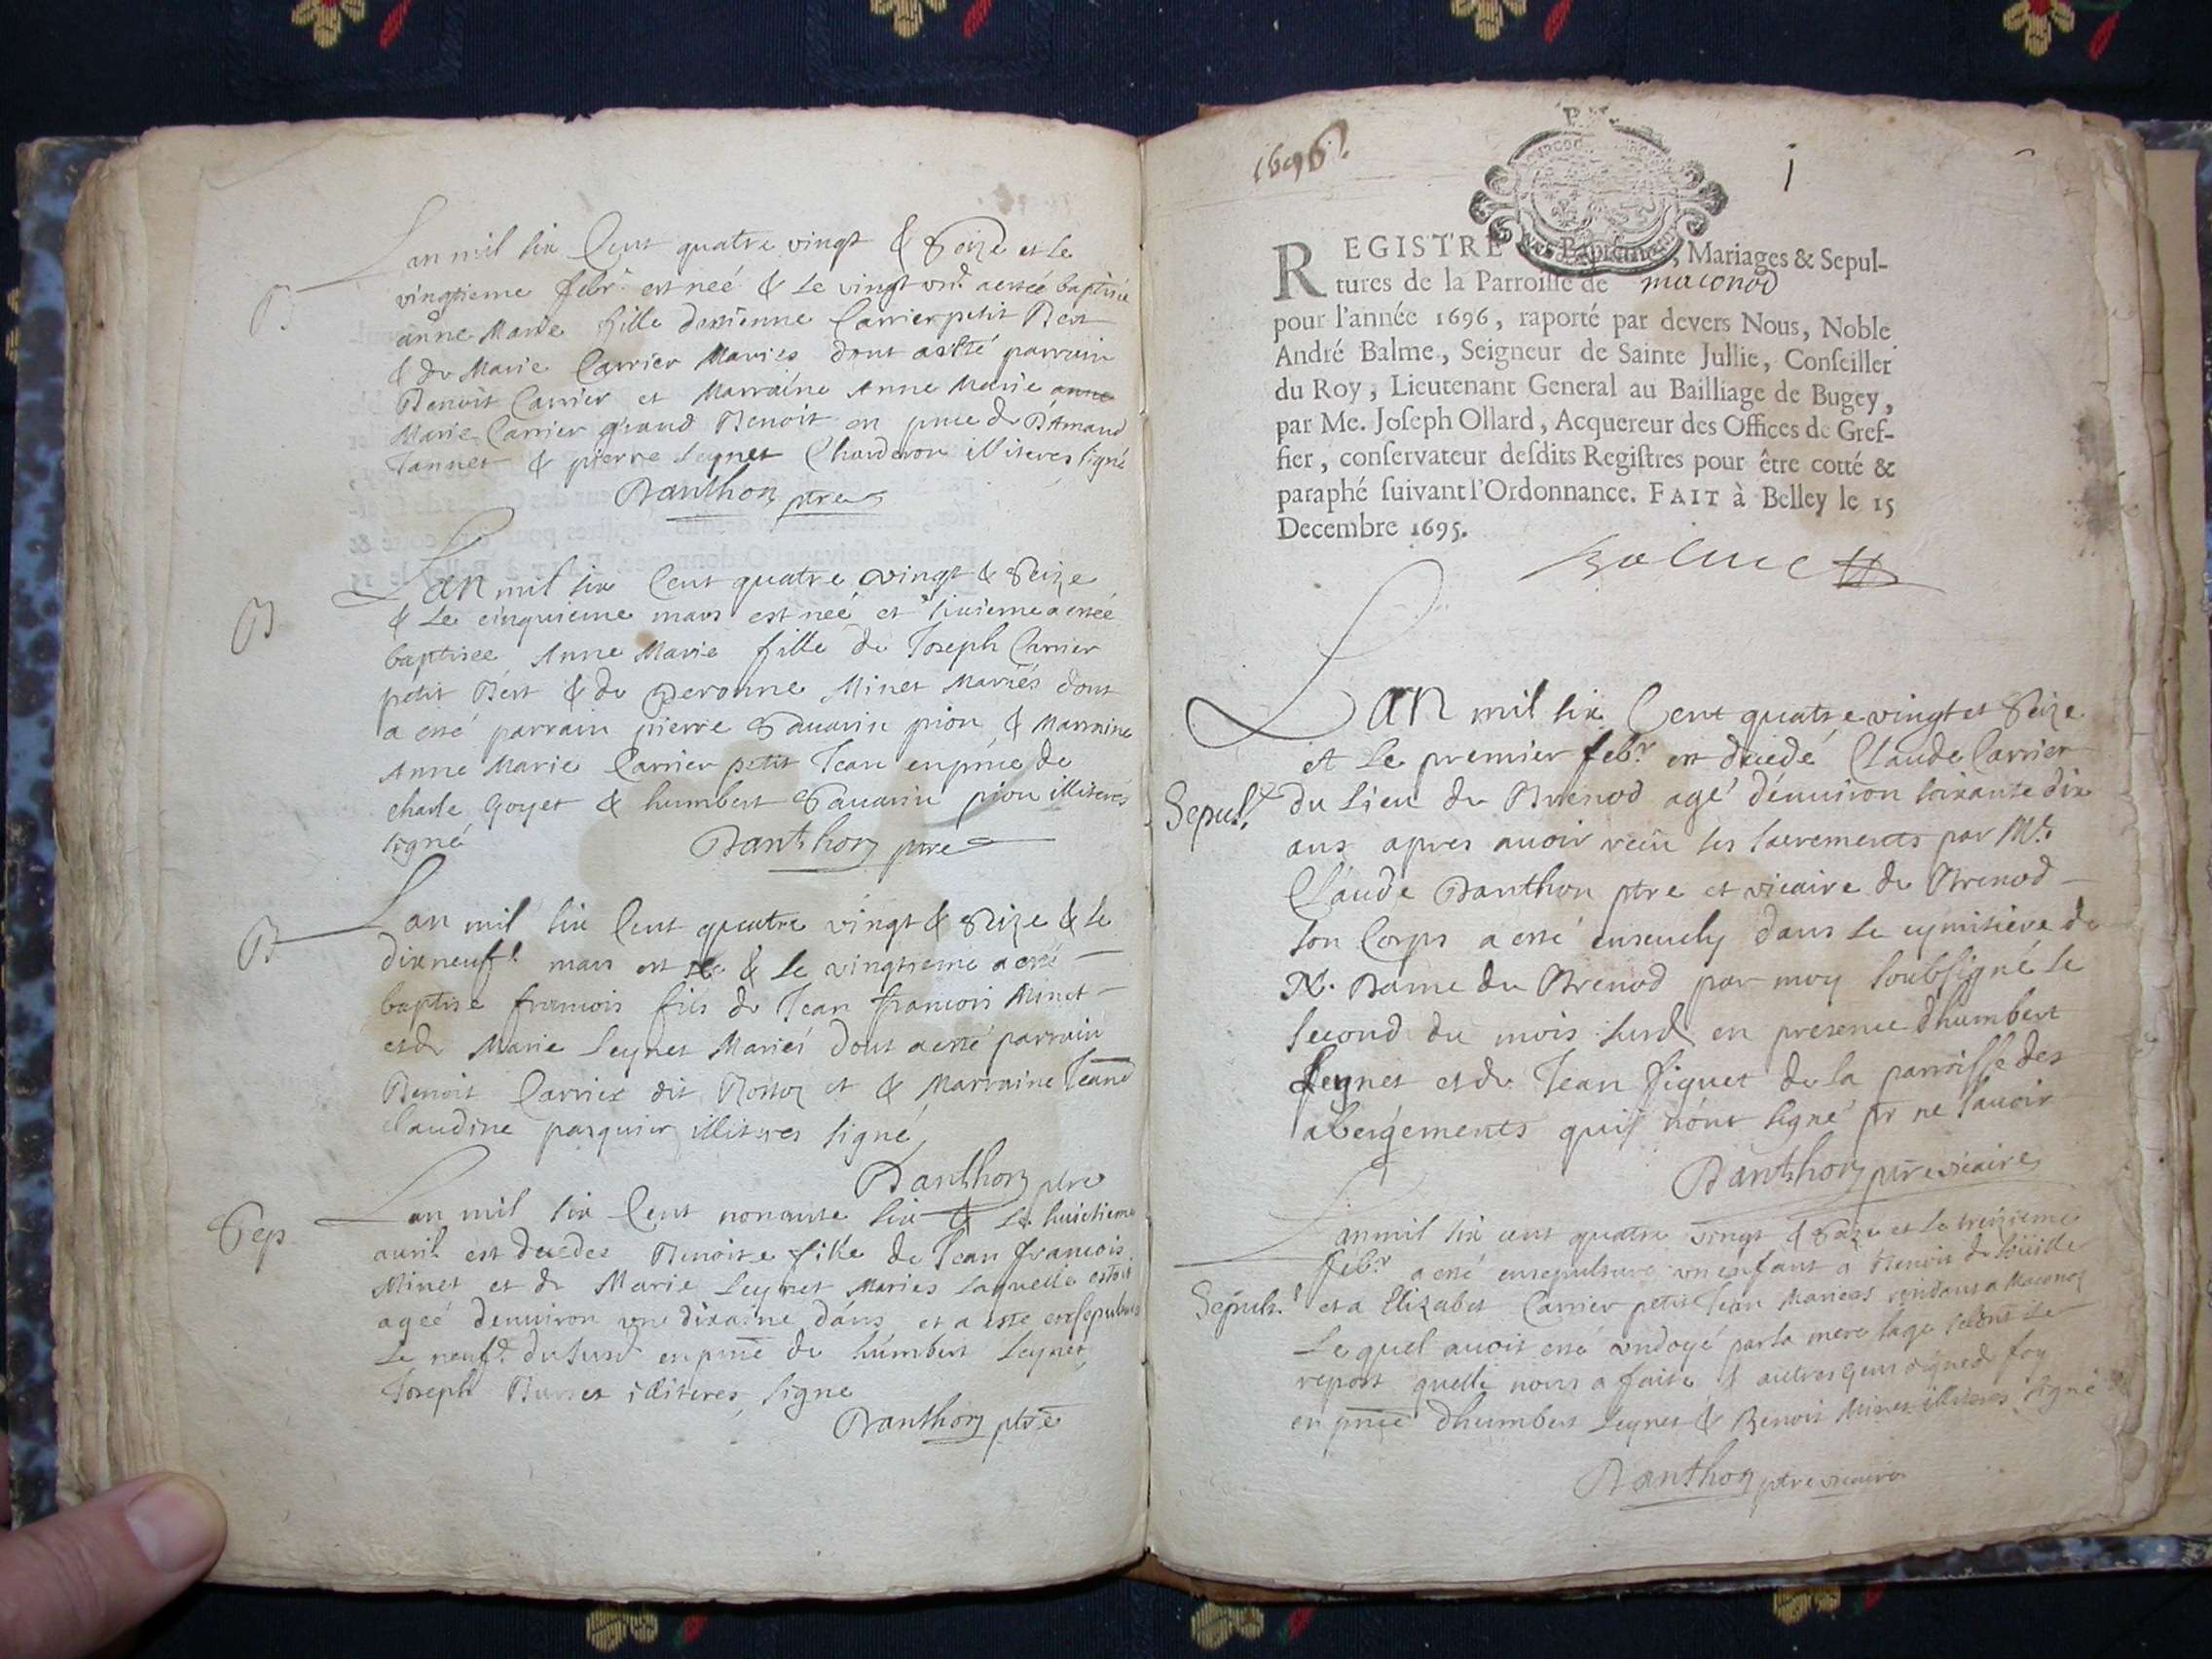 B
Lan mil six Cent quatre vingt & Seize et le
vingtieme febr. est neé & le vingt un.e a esteé baptisée
anne Marie fille destienne Carrier petit Bert
& de Marie Carrier Mariés dont a esté parrain
Benoit Carrier et Marraine Anne Marie anne
Marie Carrier grand Benoit en pnce de
Jannet & pierre Seynet Charderon illiteres signé
Danthon ptre
B
Lan mil six Cent quatre vingt & Seize
& le cinquieme mars est neé et sixieme a esteé
baptisee Anne Marie fille de Joseph Carrier
petit Bert & de Peronne Minet Mariés dont
a esté parrain pierre Savarin pion & Marraine
Anne Marie Carrier petit Jean en pnce de
charle Goyet & humbert Savarin pion illiteres
signé
Danthon ptre
B
Lan mil six Cent quatre vingt & Seize & le
dixneuf.e mars est né & le vingtieme a esté
baptisé francois fils de Jean francois Minet
et de Marie Seynet Mariés dont a esté parrain
Benoit Carrier dit Roston et & Marraine Jeane
Claudine pasquier illiteres signé
Danthon ptre
Sep
Lan mil six Cent nonante six & le huictieme
avril est decedee Benoite fille de Jean francois
Minet et de Marie Seynet Maries laquelle estoit
ageé denviron une dixaine dans et a este ensepulturee
le neuf.e du susd en pnce de humbert Seynet
Joseph illiteres signe
Danthon ptre
1696
1
REGISTRE des Baptesmes, Mariages & Sepul-
tures de la Parroisse de maconod
pour l'année 1696, raporté par devers Nous, Noble
André Balme, Seigneur de Sainte Jullie, Conseiller
du Roy, Lieutenant General au Bailliage de Bugey,
par Me. Joseph Ollard, Acquereur des Offices de Gref-
fier, conservateur desdits Registres pour être cotté &
paraphé suivant l'Ordonnance. FAIT à Belley le 15
Decembre 1695.
Balme
Lan mil six Cent quatre vingt et Seize
et le premier febr. est decedé Claude Carrier
Sepult.
du lieu de Brenod agé d'environ soixante dix
ans apres avoir receu ses sacrements par Mr.
Claude Danthon ptre et vicaire de Brenod
son Corps a esté ensevely dans le cymitiere de
N. Dame de Brenod par moy soubsigné le
second du mois susd en presence dhumbert
Seynet et de Jean figuet de la parroisse des
abergements quis n'ont signé pr ne scavoir
Danthon ptre vicaire
Lan mil six cent quatre vingt & Seize et le treizieme
febr. a esté ensepulturé un enfant a Benoit de
Sepult.
et a Elizabet Carrier petit Jean Mariees residans a Maconod
Lequel avoit esté ondoyé par la mere sage selont le
report quelle nous a faite & autres gens digne de foy
en pnce dhumbert Seynet & Benoit Minet illiteres signé
Danthon ptre vicaire